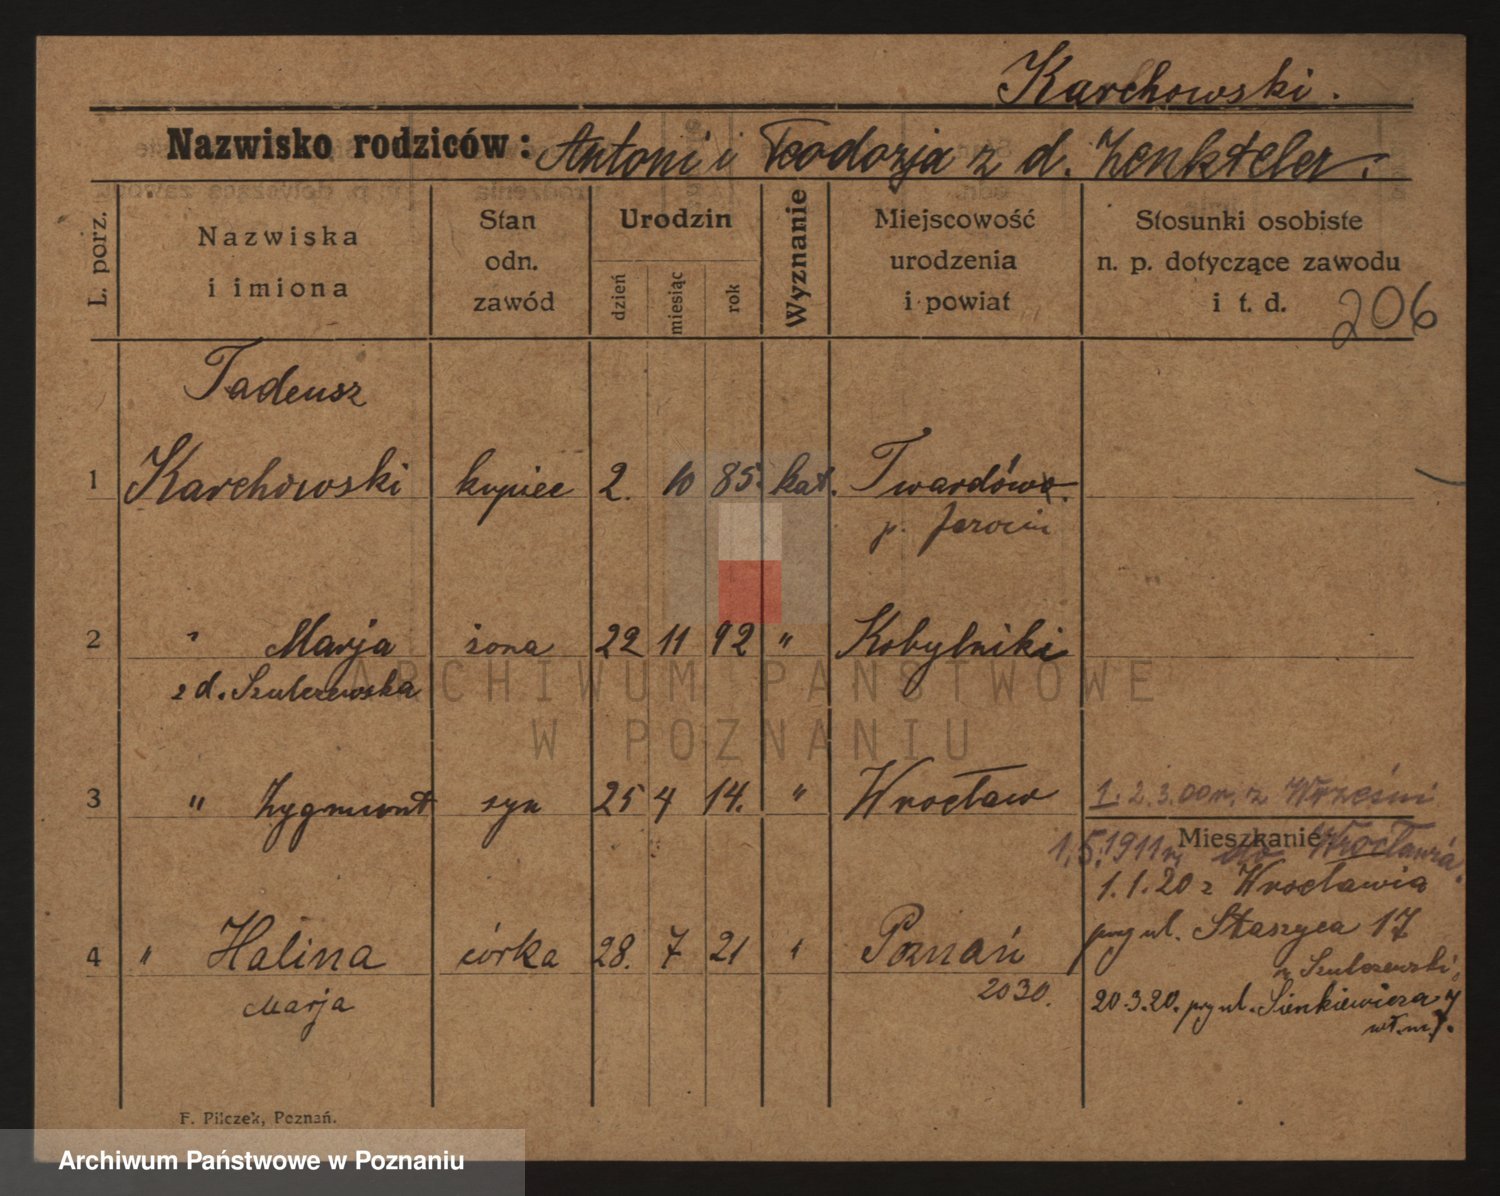 Karchowski.
Nazwisko rodziców: Antoni i Teodozja z d. Zenkteler.
L. porz.
Nazwiska i imiona
Stan odn. zawód
Urodzin
dzień
miesiąc
rok
Wyznanie
Miejscowość urodzenia i powiat
Stosunki osobiste n. p. dotyczące zawodu i t. d.
206
Tadeusz
1 Karchowski kupiec 2. 10 85. kat. Twardów
p. Jarocin
2 " Marja żona 22 11 92 " Kobylniki
z d. Szulczewska
3 " Zygmunt syn 25 4 14. " Wrocław
1. 2. 3. 00 r. z Wrześni
Mieszkanie
1.5.1911 r. do Wrocławia.
1.1.20 z Wrocławia
przy ul. Staszyca 17
4 " Halina córka 28. 7 21 " Poznań
u Szulczewski
Marja
2030.
20.3.20. przy ul. Sienkiewicza 7
wł. m.
F. Pilczek, Poznań.
ARCHIWUM PAŃSTWOWE
W POZNANIU
Archiwum Państwowe w Poznaniu